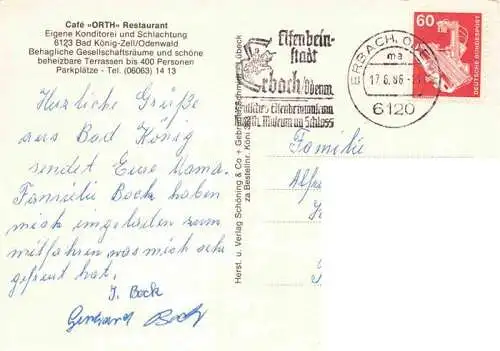 Café »ORTH« Restaurant
Eigene Konditorei und Schlachtung
6123 Bad König-Zell/Odenwald
Behagliche Gesellschaftsräume und schöne
beheizbare Terrassen bis 400 Personen
Parkplätze - Tel. (06063) 14 13
Herzliche Grüße
aus Bad König
sendet Eure Mama.
Familie Bock haben
mich eingeladen zum
mitfahren was mich sehr
gefreut hat.
J. Bock
Gerhard Bock
Herst. u. Verlag Schöning & Co + Gebrüder Schmidt
Lübeck
za Bestellnr. Köni
Elfenbein-
stadt
Erbach/Odenw.
Deutsches Elfenbeinmuseum
Museum im Schloss
ERBACH, ODENW
ma
17.6.86
6120
60
DEUTSCHE BUNDESPOST
Familie
Alfre